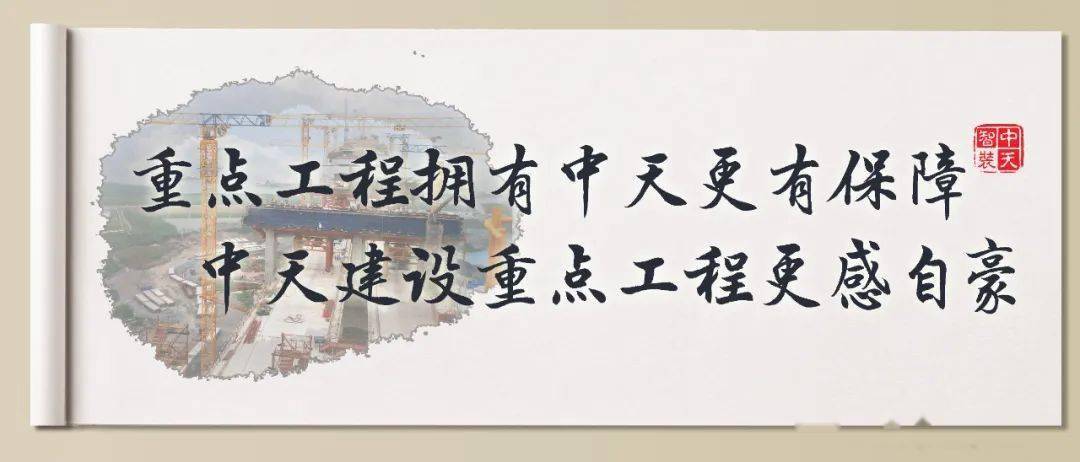 重点工程拥有中天更有保障
中天建设重点工程更感自豪
中天
智装